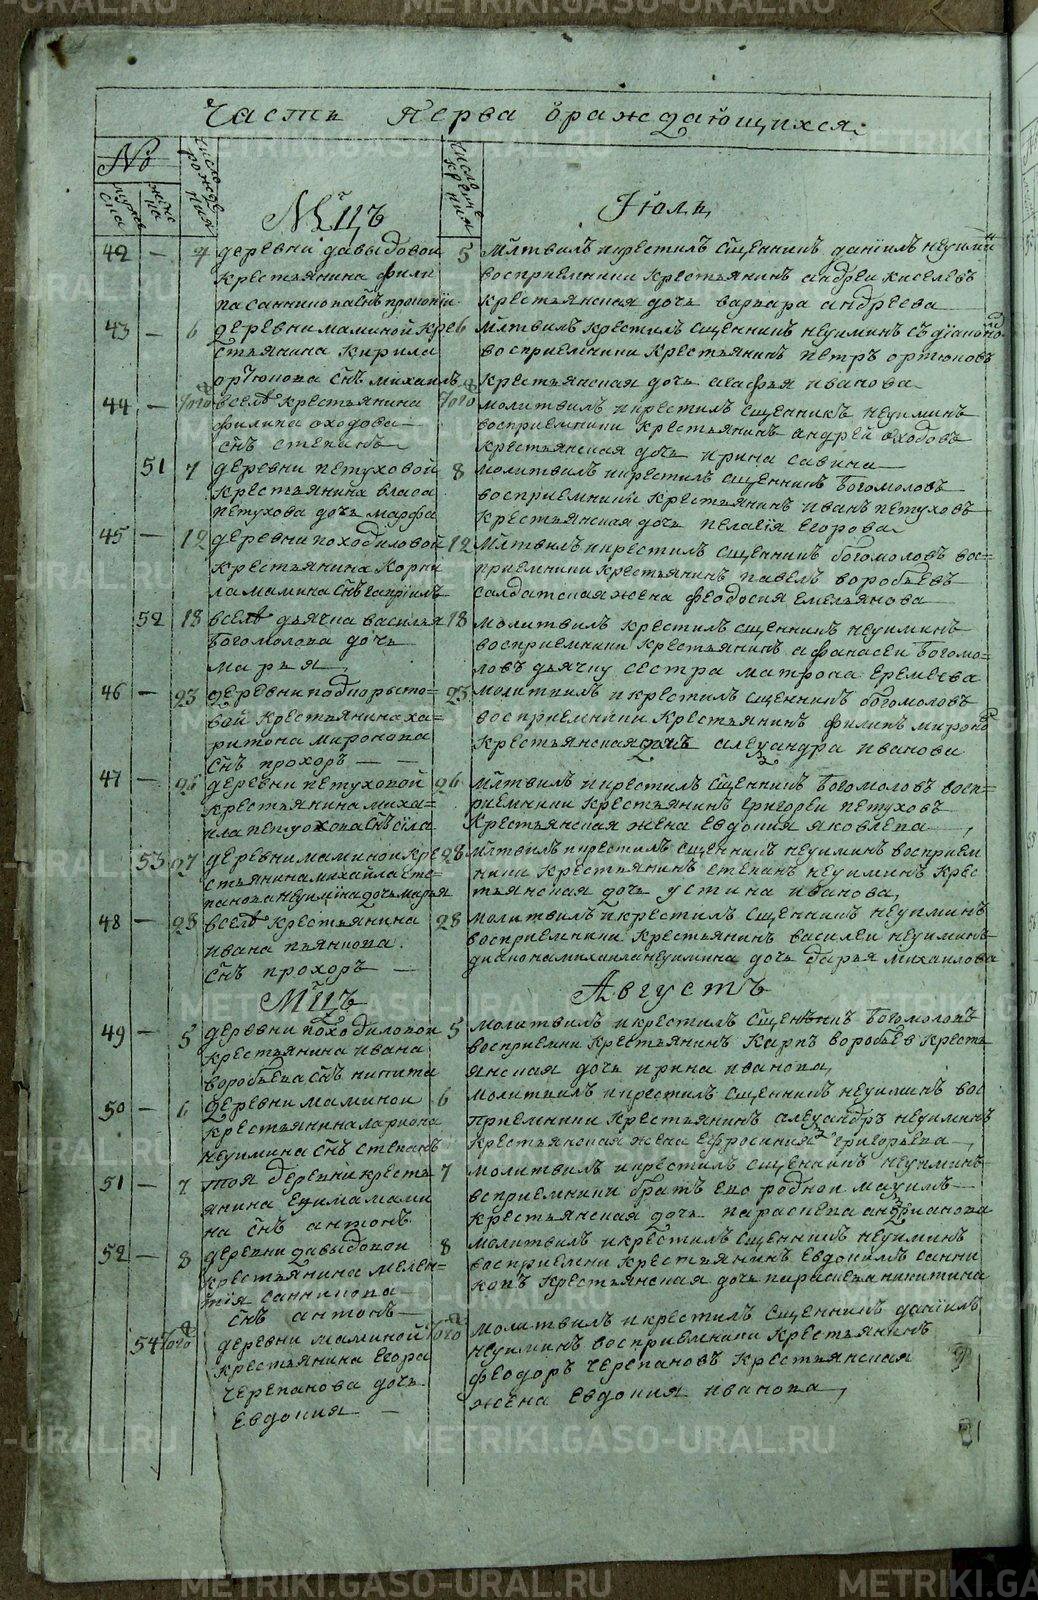 Часть Перва ѡраждающихся
№
мужеска
женска
число рождения
число крещения
Мцъ
Июль
42 — 4 деревни давыдовой
крестьянина фили
па санникова снъ прокопiй
5 Млтвилъ и крестилъ сщенникъ данiилъ неуиминъ
восприемники крестьянинъ андреи киселевъ
крестьянская дочь варвара андреева
43 — 6 деревни маминой кре
стьянина кирила
ортюкова снъ михаилъ
6 Млтвилъ крестилъ сщенникъ неуиминъ съ дiакономъ
восприемники крестьянинъ петръ ортюковъ
крестьянская дочь агафья иванова
44 — того всель крестьянина
филипа оходова
снъ степанъ
того молитвилъ и крестилъ сщенникъ неуиминъ
восприемники крестьянинъ андрей оходовъ
крестьянская дочь ирина савина
51 7 деревни петуховой
крестьянина власа
петухова дочь марфа
8 молитвилъ и крестилъ сщенникъ богомоловъ
восприемники крестьянинъ иванъ петуховъ
крестьянская дочь пелагiя егорова
45 — 12 деревни походиловой
крестьянина корни
ла мамина снъ гаврiилъ
12 Млтвилъ и крестилъ сщенникъ богомоловъ вос=
приемники крестьянинъ павелъ воробьевъ
салдатская жена феодосия емельянова
52 18 всель дьячка василья
богомолова дочь
марья
18 молитвилъ крестилъ сщенникъ неуиминъ
восприемники крестьянинъ афанасеи богомо=
ловъ дьячку сестра матрона еремеева
46 — 23 деревни подкорыто=
вой крестьянина ха=
ритона миронова
снъ прохоръ —
23 молитвилъ и крестилъ сщенникъ богомоловъ
восприемники крестьянинъ филипъ мироновъ
крестьянская дочь александра иванова
47 — 26 деревни петуховой
крестьянина миха=
ила петухова снъ сила
26 Млтвилъ и крестилъ сщенникъ богомоловъ восп=
риемники крестьянинъ григореи петуховъ
крестьянская жена евдокия яковлева
53 27 деревни маминои кре
стьянина михайла сте=
панова неуимина дочь марья
28 Млтвилъ и крестилъ сщенникъ неуиминъ восприем
ники крестьянинъ степанъ неуиминъ крес
тьянская дочь устина иванова
48 — 28 всель крестьянина
ивана пьянкова
снъ прохоръ —
28 молитвилъ и крестилъ сщенникъ неуиминъ
восприемники крестьянинъ василеи неуиминъ
диакона михаила неуимина дочь дарья михаилова
Мцъ
Августъ
49 — 5 деревни походиловои
крестьянина ивана
воробьева снъ никита
5 молитвилъ и крестилъ сщенникъ богомоловъ
восприемни крестьянинъ карпъ воробьев кресть
янская дочь ирина иванова
50 — 6 деревни маминои
крестьянина лариона
неуимина снъ степанъ
6 молитвилъ и крестилъ сщенникъ неуиминъ вос
приемники крестьянинъ александръ неуиминъ
крестьянская жена ефросиния григорьева
51 — 7 тоя деревни кресть
янина екима мами
на снъ антонъ
7 молитвилъ и крестилъ сщенникъ неуиминъ
восприемники братъ ево роднои михаилъ
крестьянская дочь параскева андрианова
52 — 8 деревни давыдовои
крестьянина мелен=
тiя санникова
снъ антонъ —
8 молитвилъ и крестилъ сщенникъ неуиминъ
восприемни крестьянинъ евдокимъ санни
ковъ крестьянская дочь параскева никитина
54 того деревни маминой
крестьянина егора
черепанова дочь
евдокия —
того молитвилъ и крестилъ сщенникъ данiилъ
неуиминъ восприемники крестьянинъ
феодоръ черепановъ крестьянская
жена евдокия иванова
METRIKI.GASO-URAL.RU